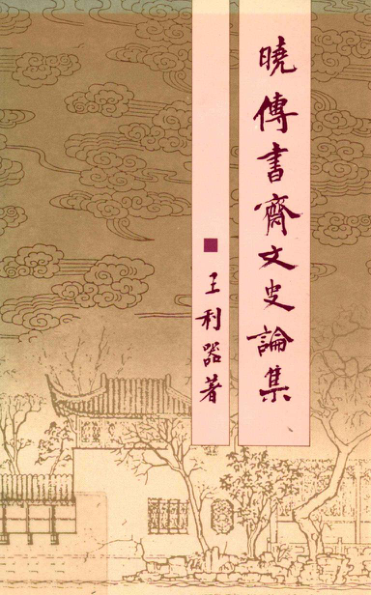 曉傳書齋文史論集
■王利器著